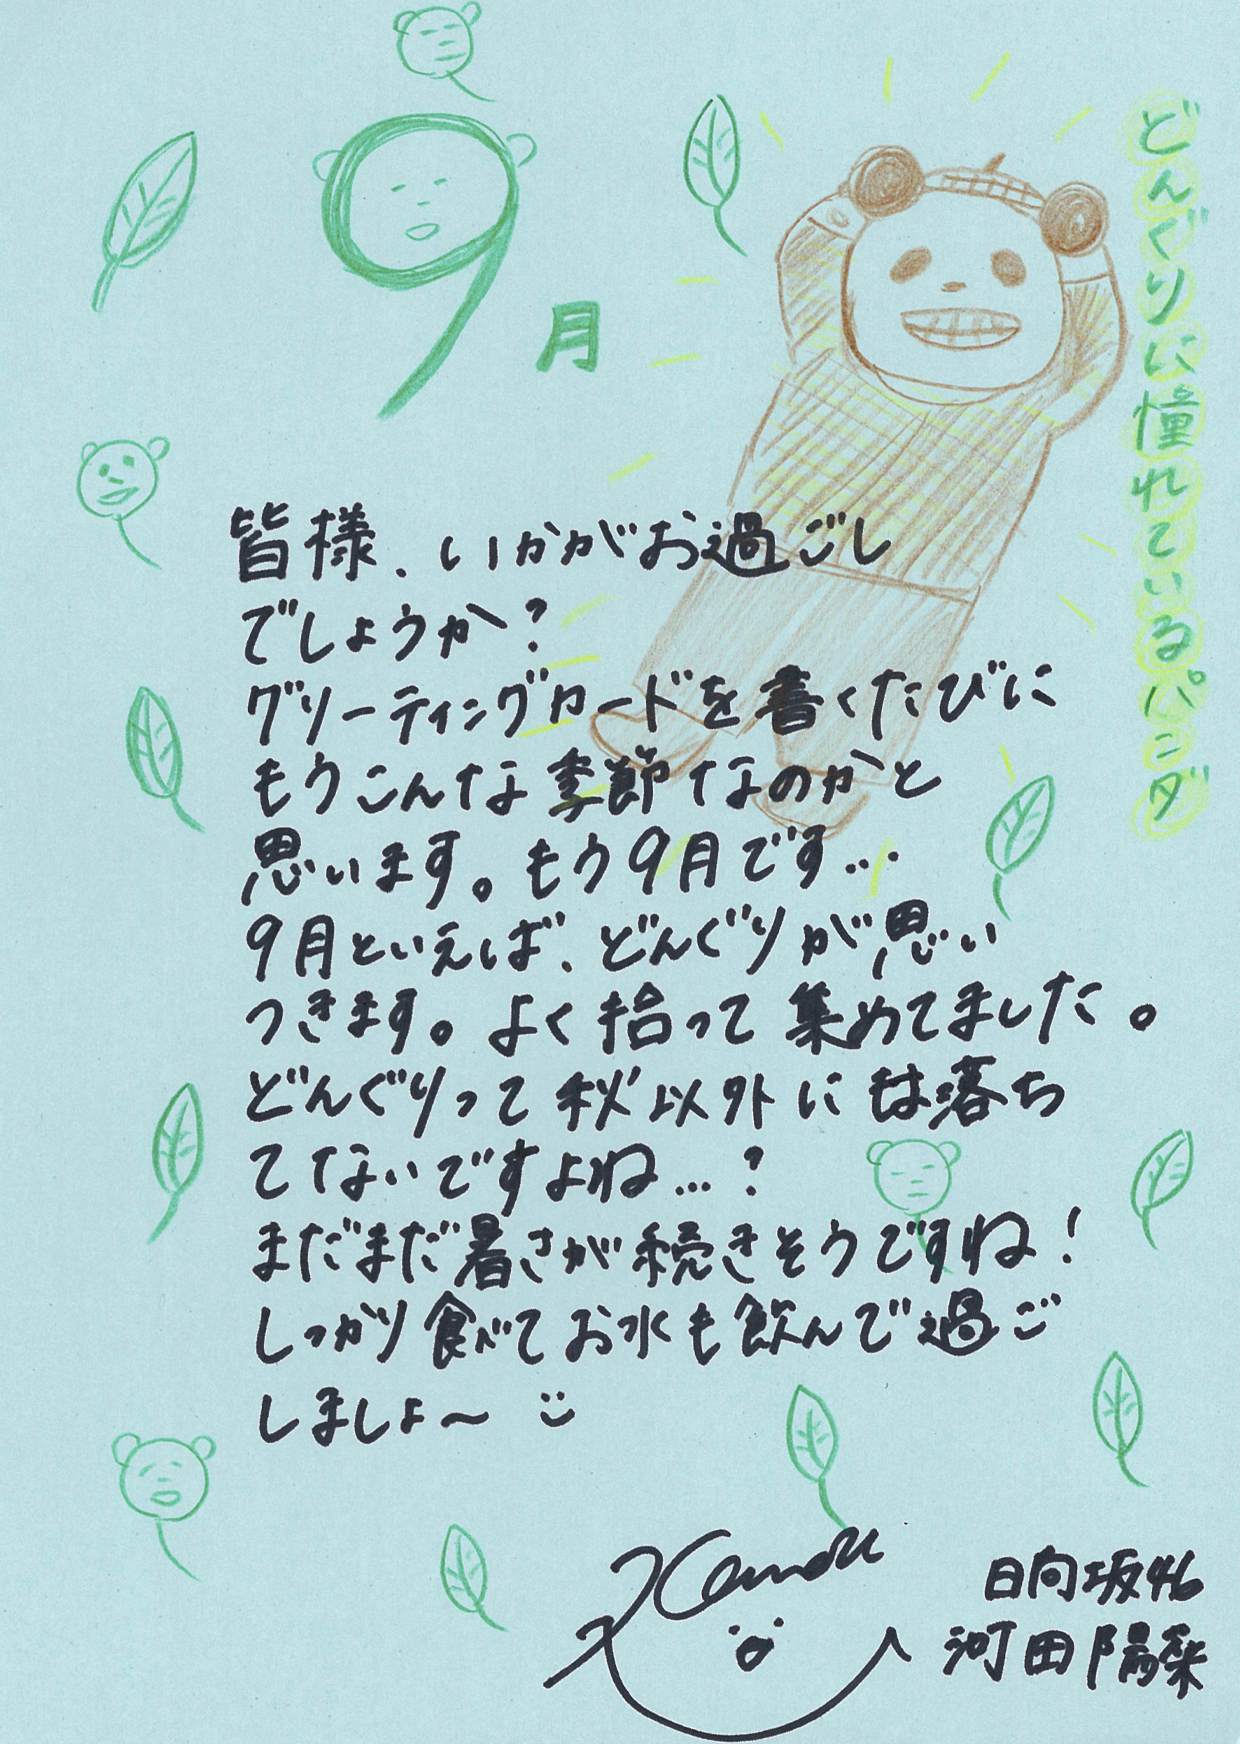 9月
どんぐりに憧れているパンダ
皆様、いかがお過ごし
でしょうか?
グリーティングカードを書くたびに
もうこんな季節なのかと
思います。もう9月です...
9月といえば、どんぐりが思い
つきます。よく拾って集めてました。
どんぐりって秋以外には落ち
てないですよね...?
まだまだ暑さが続きそうですね!
しっかり食べてお水も飲んで過ご
しましょ〜
日向坂46
河田陽菜